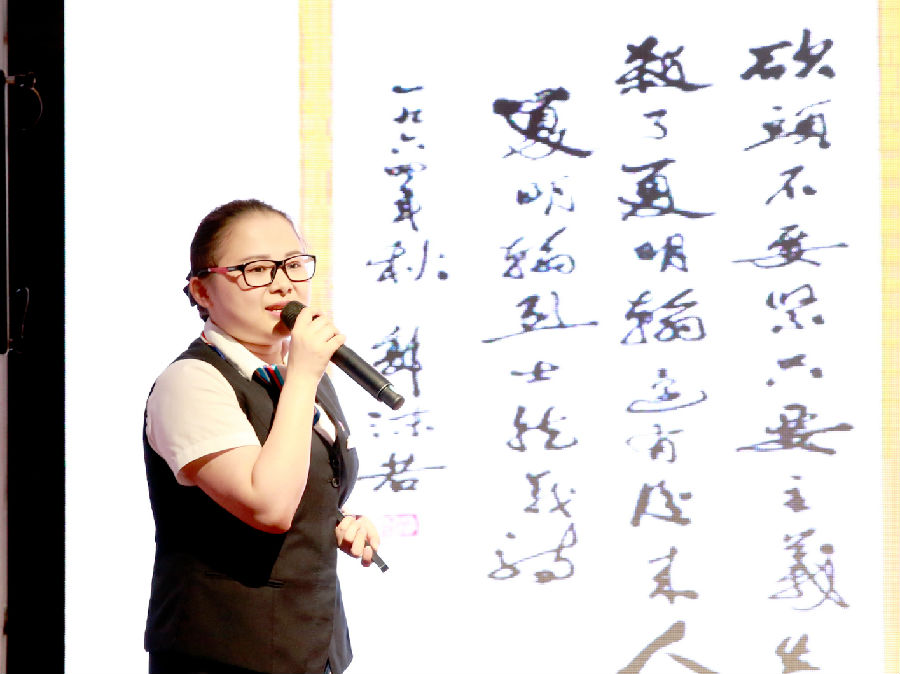 砍頭不要紧只要主義
殺了夏明翰还有後来人
夏明翰烈士就義詩
一九六四年秋 郭沫若